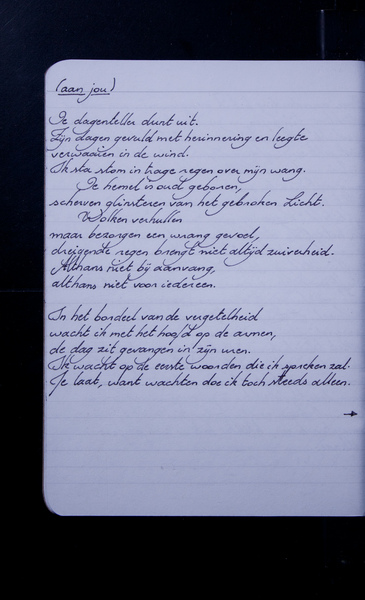 (aan jou)
De dagenteller dunt uit.
Zijn dagen gevuld met herinnering en leegte
verwaaien in de wind.
Ik sta stom in trage regen over mijn wang.
De hemel is oud geboren,
scherven glinsteren van het gebroken Licht.
Wolken verhullen
maar bezorgen een wrang gevoel,
dreigende regen brengt niet altijd zuiverheid.
Althans niet bij aanvang,
althans niet voor iedereen.
In het bordeel van de vergetelheid
wacht ik met het hoofd op de armen,
de dag zit gevangen in zijn uren.
Ik wacht op de eerste woorden die ik spreken zal.
Te laat, want wachten doe ik toch steeds alleen.
→